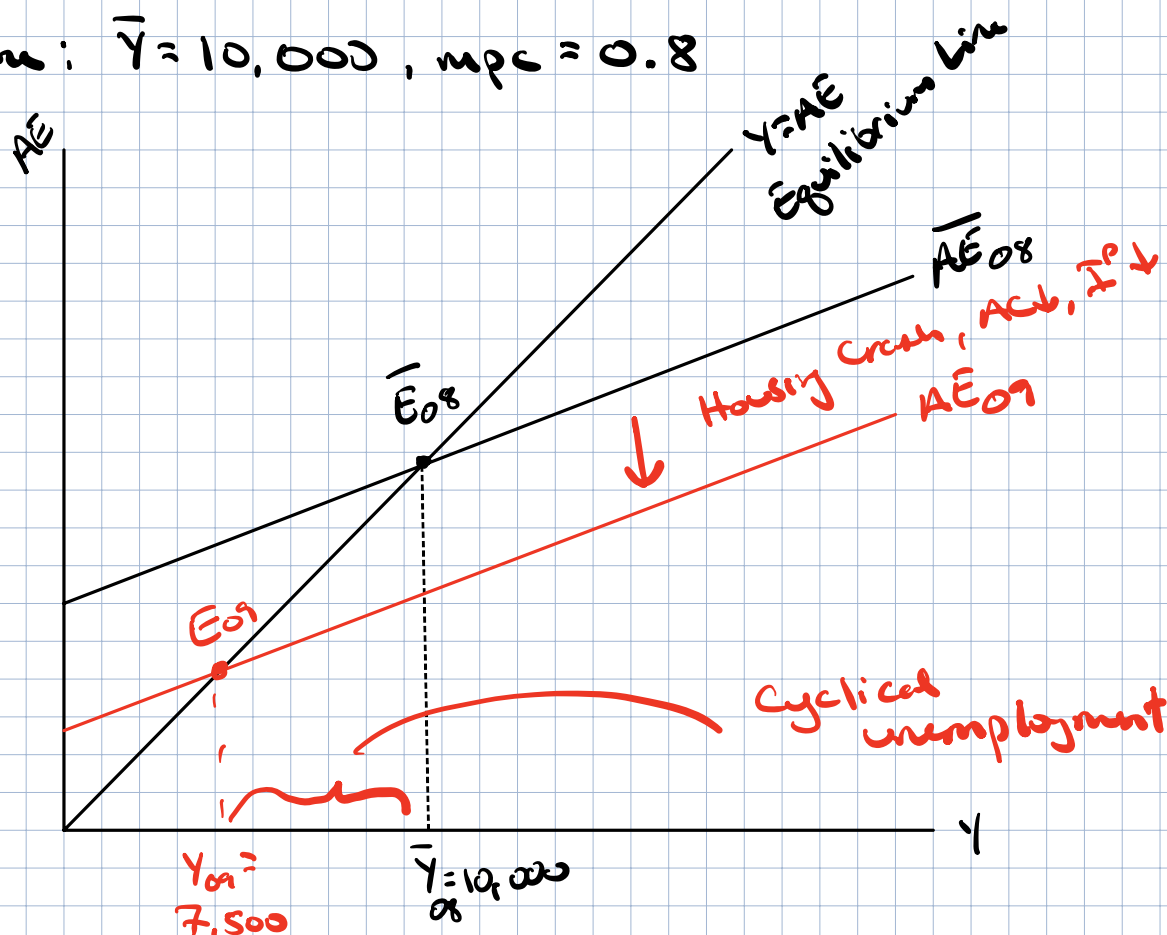 : Ȳ = 10,000, mpc = 0.8
AE
Y=AE
Equilibrium Line
A̅E̅08
Housing Crash, AC↓, Iᴾ↓
AE09
E̅08
E09
Cyclical
unemployment
Y
Y09=
7,500
Ȳ=10,000
08